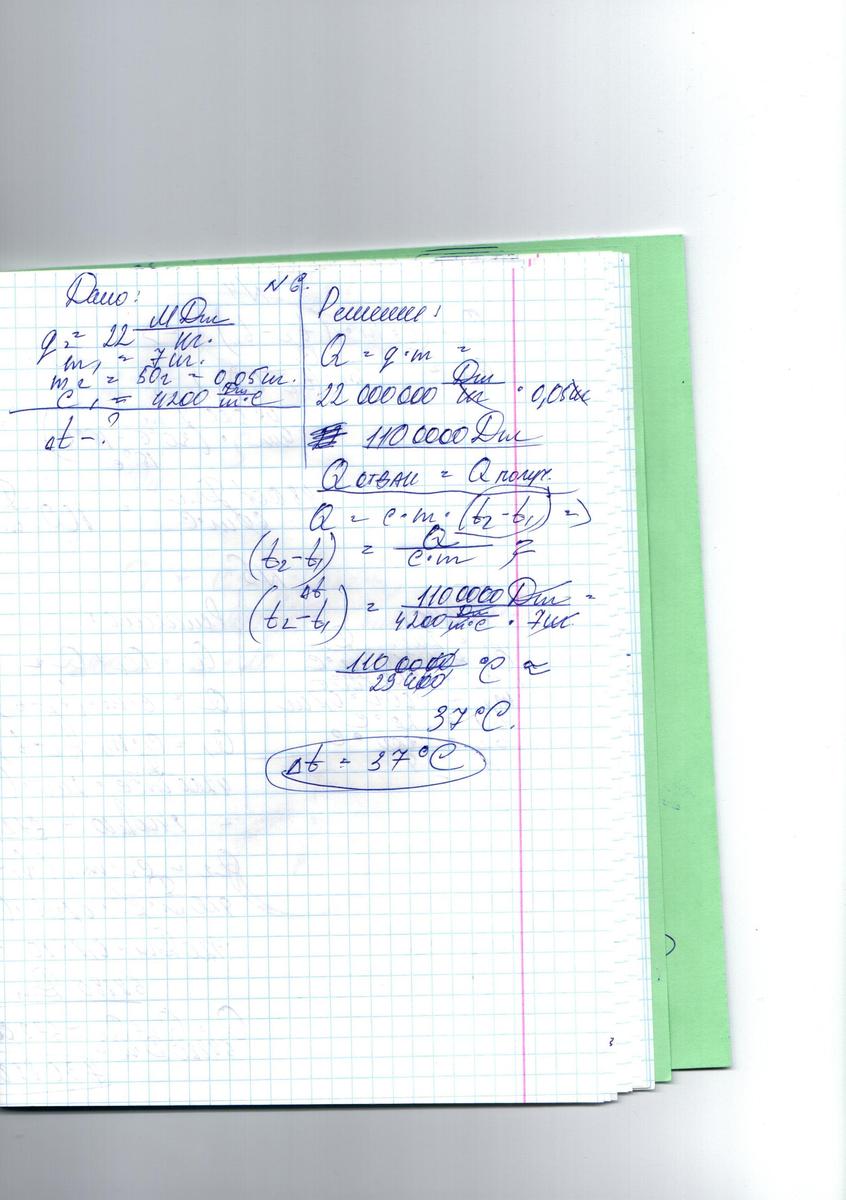 N 6.
Дано:
q = 22 МДж/кг.
m₁ = 7 кг.
m₂ = 50г = 0,05кг.
C₁ = 4200 Дж/кг·°C
Δt - ?
Решение:
Q = q·m =
22 000000 Дж/кг · 0,05кг
1100000 Дж
Q отдан = Q получ.
Q = c·m·(t₂-t₁) =>
(t₂-t₁) = Q/c·m
Δt
(t₂-t₁) = 1100000 Дж/4200 Дж/кг·°C · 7кг =
1100000/29400 °C ≈
37°C.
Δt = 37°C